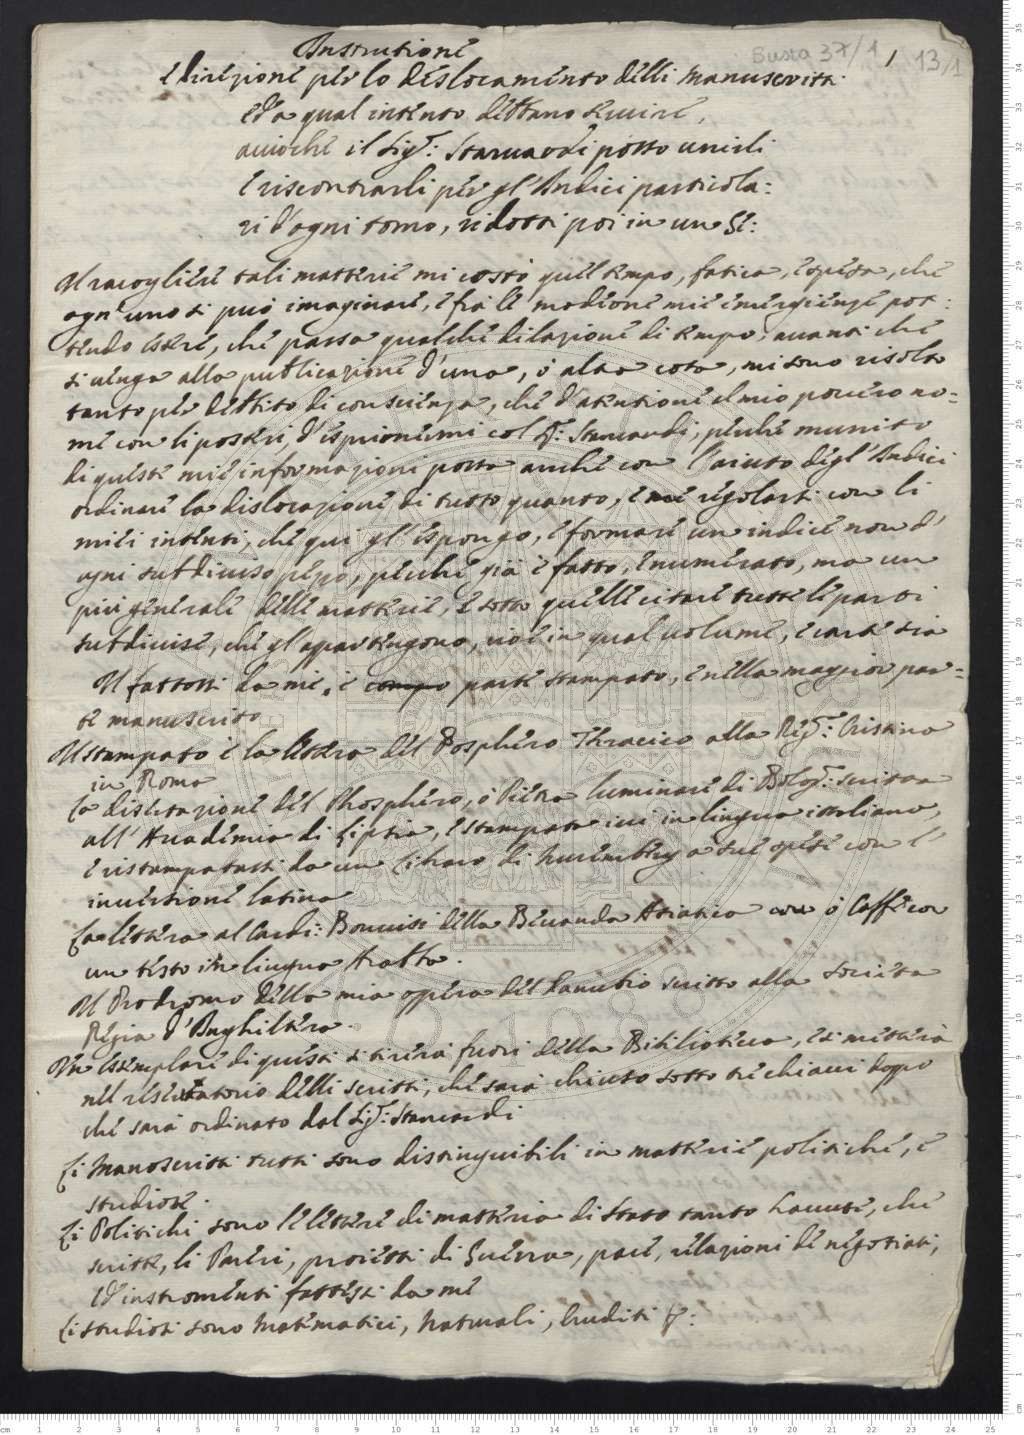 Busta 37/1 1 13/1
Instrutione
e Direzione per lo deslocamento delli Manuscritti
ed a qual intento debbano servire,
acciochè il Sig.r: Stancardi possa unirli
e riscontrarli per gl'Indici particola:
ri d'ogni tomo, ridotti poi in un Ge:
Il racogliere tali matterie mi costò quel tempo, fatica, e spesa, che
ogn'uno si può imaginare, e frà le moderne mie emergienze pot:
tendo essere, che passa qualche dilazione di tempo, avanti che
si venga alla publicazione d'una, ò altra cosa, mi sono risolto
tanto per debbito di conscienza, che d'atentione el mio povero no=
me con li posteri, d'esprimermi col Sr: Stancardi, perchè munito
di queste mie informazioni possa anche con l'aiuto degl'Indici
ordinare la dislocazione di tutto quanto, e regolarsi con li
miei intenti, che qui gl'espongo, e formare un indice non d'
ogni subdiviso pezo, perchè già è fatto, e numerato, ma un
più generale delle matterie, e sotto quelle citare tutte le parti
subdivise, che gl'appartengono, cioè in qual volume, e carte sia
Il fattosi da me, è parte stampato, e nella maggior par=
te manuscrito
Il stampato è la lettera del Bosphero Thracico alla Reg.a: Cristina
in Roma
La disertazione del Phosphero, ò Pietra luminare di Bolog.a: scritta
all'Accademia di Lipsia, e stampata ivi in lingua ittaliana,
e ristampatasi da un Libraro di Nurembergo a sue spese con l'
inversione latina
La lettera al Cardi: Bonvisi della Bevanda Asiatica ò Caffè con
un testo in lingua Arabba.
Il Prodromo della mia oppera del Danubio scritto alla Societa
Regia d'Inghiltera.
Un essemplare di questi si tirerà fuori della Bibliotteca, e si metterà
nel reservatorio delli scritti, che sarà chiuso sotto tre chiavi doppo
che sarà ordinato dal Sig.r: Stancardi
Li Manoscritti tutti sono distinguibili in matterie politiche, e
studiose.
Li Politichi sono le lettere di matteria di stato tanto havute, che
scritte, li Pareri, proietti di Guerra, pace, relazioni de negotiati,
ed instromenti fattisi da me
Li studiosi sono Matematici, Naturali, Eruditi &: